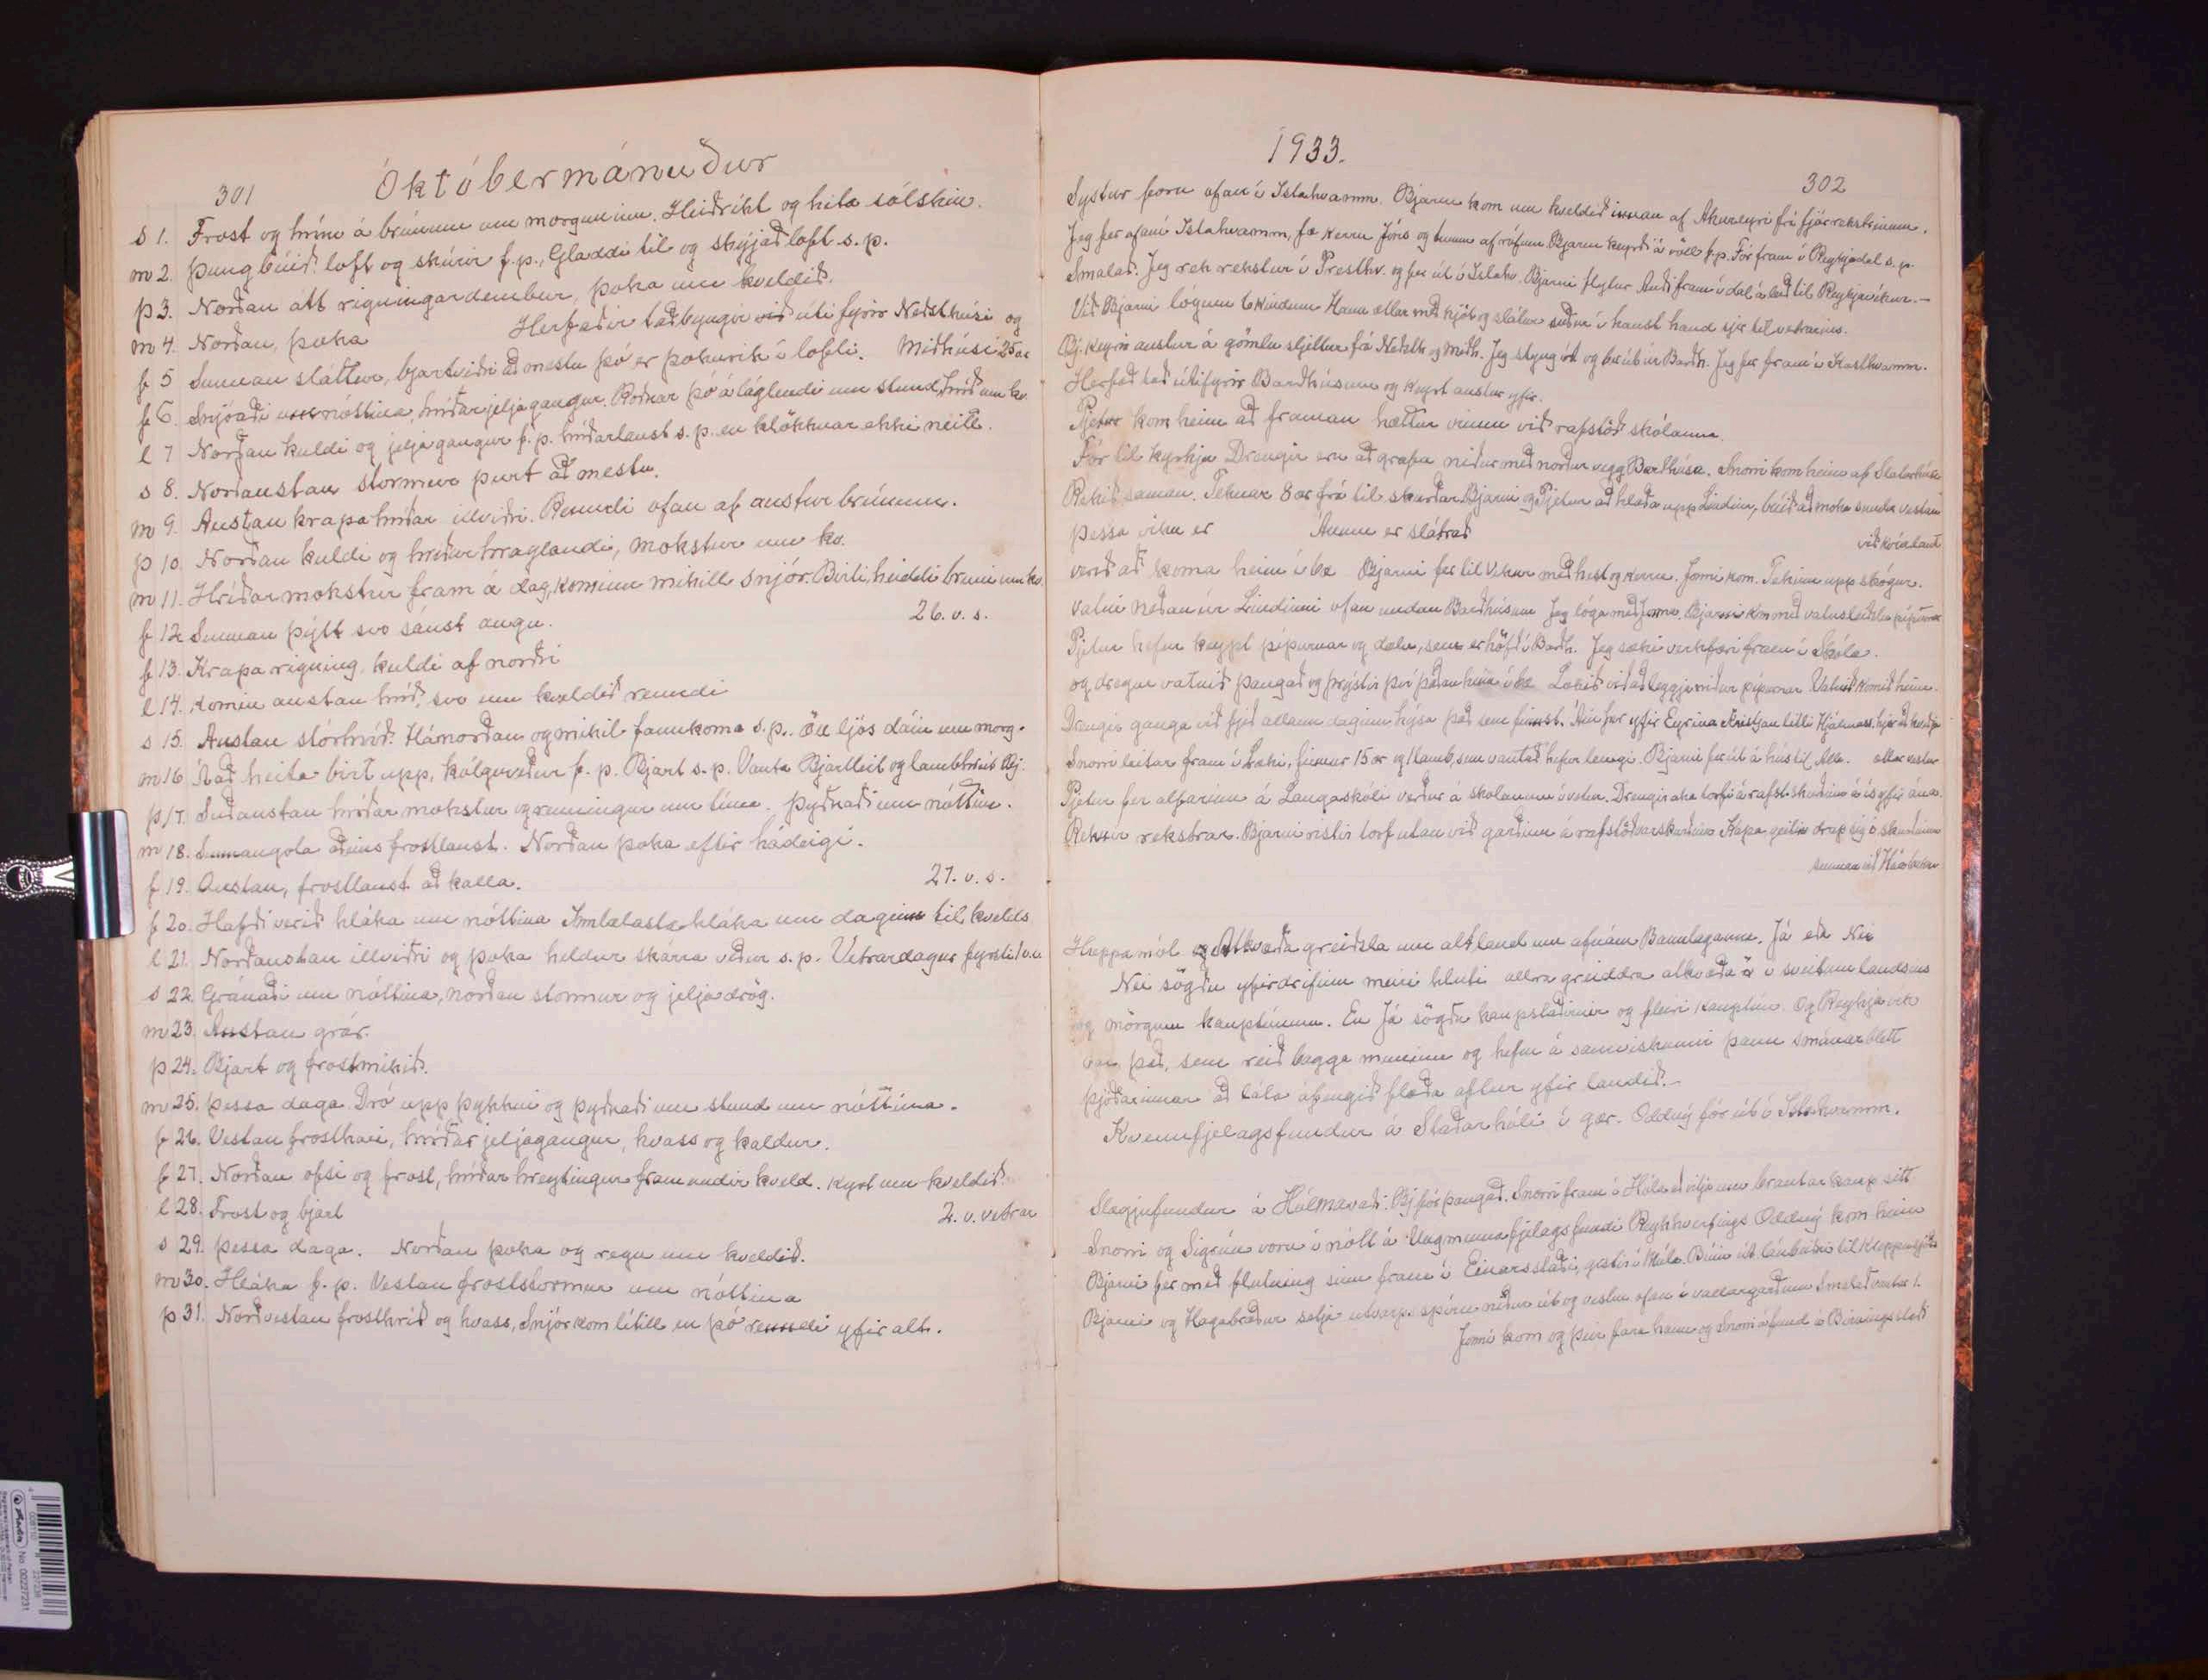 301
Októbermánuður
s 1. Frost og hrím á brúnum um morguninn. Heiðríkt og hita sólskin.
m 2. Þungbúið loft og skúrir f.p., Gladdi til og skýjað loft s.p.
þ 3. Norðan átt rigningardembur, þoka um kveldið.
m 4. Norðan, þoka Herfaðir taðbyngir við úti fyrir Neðsthúsi og
f 5 Sunnan sláttur, bjartviðri að mestu þó er þokuvik í lofti. Miðhúsi 25 ær
f 6. Snjóaði nóttina, hríðar jeljagangur. Roðnar þó á láglendi um stund, hríð um kv.
l 7 Norðan kuldi og jeljagangur f.p. hríðarlaust s.p. en klökknar ekki neitt.
s 8. Norðaustan stormur þurt að mestu.
m 9. Austan krapahríðar illviðri. Renndi ofan af austur brúnum.
þ 10. Norðan kuldi og hríðarhraglandi, mokstur um kv.
m 11. Hríðarmokstur fram á dag, kominn mikill snjór. Birti, heiddi bruni um kv.
f 12 Sunnan þýtt svo sáust augu. 26. v. s.
f 13. Krapa rigning, kuldi af norðri
l 14. Komin austan hríð, svo um kveldið renndi
s 15. Austan stórhríð. Hánorðan og mikil fannkoma s.p.. öll ljós dáin um morg.
m 16 Það heita birt upp, kólguveður f. p. Bjart s. p. Vanta Bjartleit og lambhrút Bj.
þ 17. Suðaustan hríðar mokstur og renningur um tíma. Þyðnaði um nóttina.
m 18. Sunnangola aðeins frostlaust. Norðan þoka eftir hádeigi.
f 19. Austan, frostlaust að kalla. 27. v. s.
f 20. Hafði verið hláka um nóttina Imlatasta hláka um daginn til kvelds
l 21. Norðaustan illviðri og þoka heldur skárra veður s.p. Vetrardagur fyrsti 1 v.v.
s 22. Gránaði um nóttina, norðan stormur og jeljadrög.
m 23. Austan grár.
þ 24. Bjart og frostmikið.
m 25. Þessa daga. Dró upp þykkni og þyðnaði um stund um nóttina.
f 26. Vestan frosthari, hríðar jeljagangur, hvass og kaldur.
f 27. Norðan ofsi og frost, hríðar hreytingur fram undir kveld. Kyrt um kveldið.
l 28. Frost og bjart 2. v. vetrar
s 29. Þessa daga. Norðan þoka og regn um kveldið.
m 30. Hláka f. p. Vestan froststormur um nóttina
þ 31. Norðvestan frosthríð og hvass, Snjór kom lítill en þó renndi yfir alt.
1933.
302
Systur fóru ofaní Istahvamm. Bjarni kom um kveldið innan af Akureyri frá fjárrekstrinum.
Jeg fer ofaní Istahvamm, fæ kerru Jóns og tunnu af rófum Bjarni keyrði á völl f.p. Fór fram í Reykjadal s.p.
Smalað. Jeg rek rekstur í Presthv. og fer út í Istahv. Bjarni flytur Auði fram í dal á leið til Reykjavíkur.
Við Bjarni lógum 6 kindum Hann ællar með kjöt og slátur suður í haust handa sjer til vetrarins.
Bj. keyrir austur á gömlu sljettur frá Neðsth. og Miðh. Jeg styng út og ber út úr Barðh. Jeg fer fram í Kasthvamm.
Herfað tað útifyrir Barðhúsum og keyrt austur yfir.
Pjetur kom heim að framan hættur vinnu við rafstöð skólanna.
Fór til kyrkju Drengir eru að grafa niður með norður vegg Barðhúsa. Snorri kom heim af Sláturhúsi
Rekið saman. Teknar 8 ær frá til skurðar. Bjarni og Pjetur að hlaða upp Lindina, búið að moka sunda vestan
þessa viku er Aunum er slátrað við kvíalaut
verið að koma heim í bæ Bjarni fer til Víkur með hest og kerru. Jonni kom. Tekinn upp skógur.
Vatni neðan úr Lindinni ofan undan Barðhúsum Jeg lóga með Jonna. Bjarni kom með vatnsleiðslu pípurnar
Pjetur hefur keypt pípurnar og dælu, sem er höfð í Barðh. Jeg sæki verkfæri fram í Skóla.
og dregur vatnið þangað og þrýstir því þaðan heim í bæ Lokið við að leggja niður pípurnar. Vatnið komið heim.
Drengir ganga við fjeð allann daginn hýsa það sem finnst. Áin fær yfir Eyrina Kristjan litli Hjálmars. hjer að kveðja
Snorri leitar fram í Læki, finnur 15 ær og 1 lamb, sem vantað hefur lengi. Bjarni fer út á hús til Alb. alla vestur
Pjetur fer alfarinn á Laugaskóla verður á skólanum í vetur. Drengir aka torfi á rafst. skurðinn á ís yfir ána.
Reknir rekstrar. Bjarni ristir torf utan við garðinn á rafstöðvarskurðinn Kápa geitin drap sig í skurðinum
sunnan við Háabakka
Huppamól og Atkvæða greiðsla um alt land um afnám Bannlaganna. Já eða Nei
Nei sögðu yfirdrifinn meiri hluti allra greiddra atkvæða í sveitum landsins
og mörgum kauptúnum. En Já sögðu kaupstaðirnir og fleiri kauptún. Og Reykjavík
var það, sem reið bagga muninn og hefur á samviskunni þann smánarblett
þjóðarinnar að láta áfengið flæða aftur yfir landið.-
Kvennfjelagsfundur á Staðarhóli í gær. Oddný fór út í Istahvamm.
Slægjufundur á Hólmavaði. Bj fór þangað. Snorri fram í Hóla að vitja um brautar kaup sitt
Snorri og Sigrún voru í nótt á Ungmennafjelagsfundi Reykhverfings Oddný kom heim
Bjarni fer með flutning sinn fram í Einarsstaði, gestir í Múla. Búin út lánbeiðni til Kreppusjóðs
Bjarni og Hagabræður setja útvarps spíru niður út og vestur ofan í vallargarðinn Smalað vantar 1.
Jonni kom og þeir fara hann og Snorri á fund á Birningsstaði